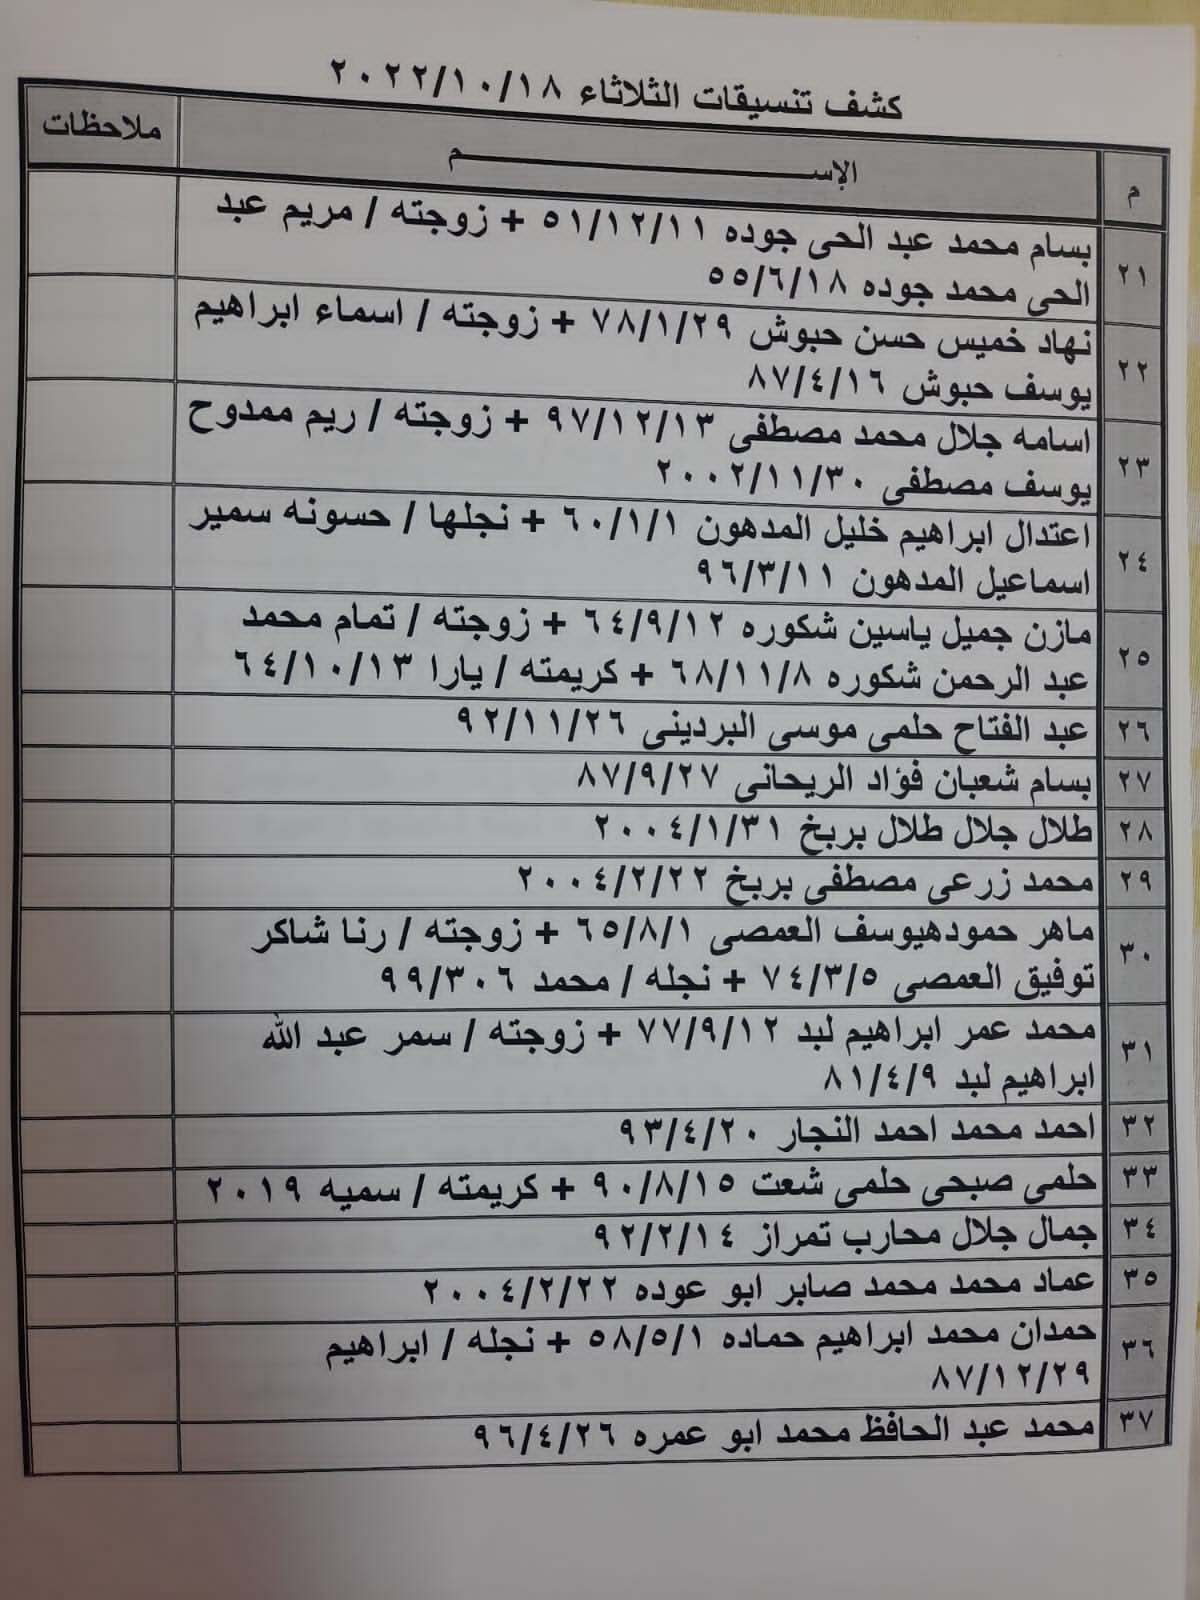 كشف تنسيقات الثلاثاء ٢٠٢٢/١٠/١٨
م الإســـــــــم ملاحظات
٢١ بسام محمد عبد الحى جوده ٥١/١٢/١١ + زوجته / مريم عبد
الحى محمد جوده ٥٥/٦/١٨
٢٢ نهاد خميس حسن حبوش ٧٨/١/٢٩ + زوجته / اسماء ابراهيم
يوسف حبوش ٨٧/٤/١٦
٢٣ اسامه جلال محمد مصطفى ٩٧/١٢/١٣ + زوجته / ريم ممدوح
يوسف مصطفى ٢٠٠٢/١١/٣٠
٢٤ اعتدال ابراهيم خليل المدهون ٦٠/١/١ + نجلها / حسونه سمير
اسماعيل المدهون ٩٦/٣/١١
٢٥ مازن جميل ياسين شكوره ٦٤/٩/١٢ + زوجته / تمام محمد
عبد الرحمن شكوره ٦٨/١١/٨ + كريمته / يارا ٦٤/١٠/١٣
٢٦ عبد الفتاح حلمى موسى البردينى ٩٢/١١/٢٦
٢٧ بسام شعبان فؤاد الريحانى ٨٧/٩/٢٧
٢٨ طلال جلال طلال بربخ ٢٠٠٤/١/٣١
٢٩ محمد زرعى مصطفى بربخ ٢٠٠٤/٢/٢٢
٣٠ ماهر حمودهيوسف العمصى ٦٥/٨/١ + زوجته / رنا شاكر
توفيق العمصى ٧٤/٣/٥ + نجله / محمد ٩٩/٣٠٦
٣١ محمد عمر ابراهيم لبد ٧٧/٩/١٢ + زوجته / سمر عبد الله
ابراهيم لبد ٨١/٤/٩
٣٢ احمد محمد احمد النجار ٩٣/٤/٢٠
٣٣ حلمى صبحى حلمى شعت ٩٠/٨/١٥ + كريمته / سميه ٢٠١٩
٣٤ جمال جلال محارب تمراز ٩٢/٢/١٤
٣٥ عماد محمد محمد صابر ابو عوده ٢٠٠٤/٢/٢٢
٣٦ حمدان محمد ابراهيم حماده ٥٨/٥/١ + نجله / ابراهيم
٨٧/١٢/٢٩
٣٧ محمد عبد الحافظ محمد ابو عمره ٩٦/٤/٢٦